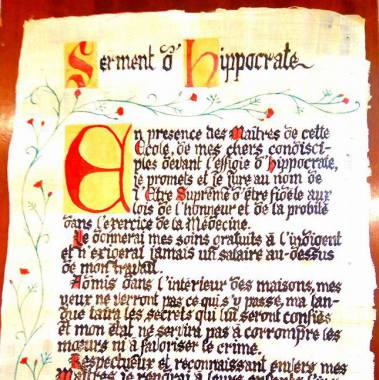 Serment d'hippocrate
En presence des Maîtres de cette
École, de mes chers condisci-
ples devant l'effigie d'hippocrate,
je promets et je jure au nom de
l'Etre Suprême d'être fidèle aux
lois de l'honneur et de la probité
dans l'exercice de la Médecine.
Je donnerai mes soins gratuits à l'indigent
et n'exigerai jamais un salaire au-dessus
de mon travail.
Admis dans l'intérieur des maisons, mes
yeux ne verront pas ce qui s'y passe, ma lan-
gue taira les secrets qui lui seront confiés
et mon état ne servira pas à corrompre les
mœurs ni à favoriser le crime.
Respectueux et reconnaissant envers mes
Maîtres, je rendrai à leurs enfants l'ins-